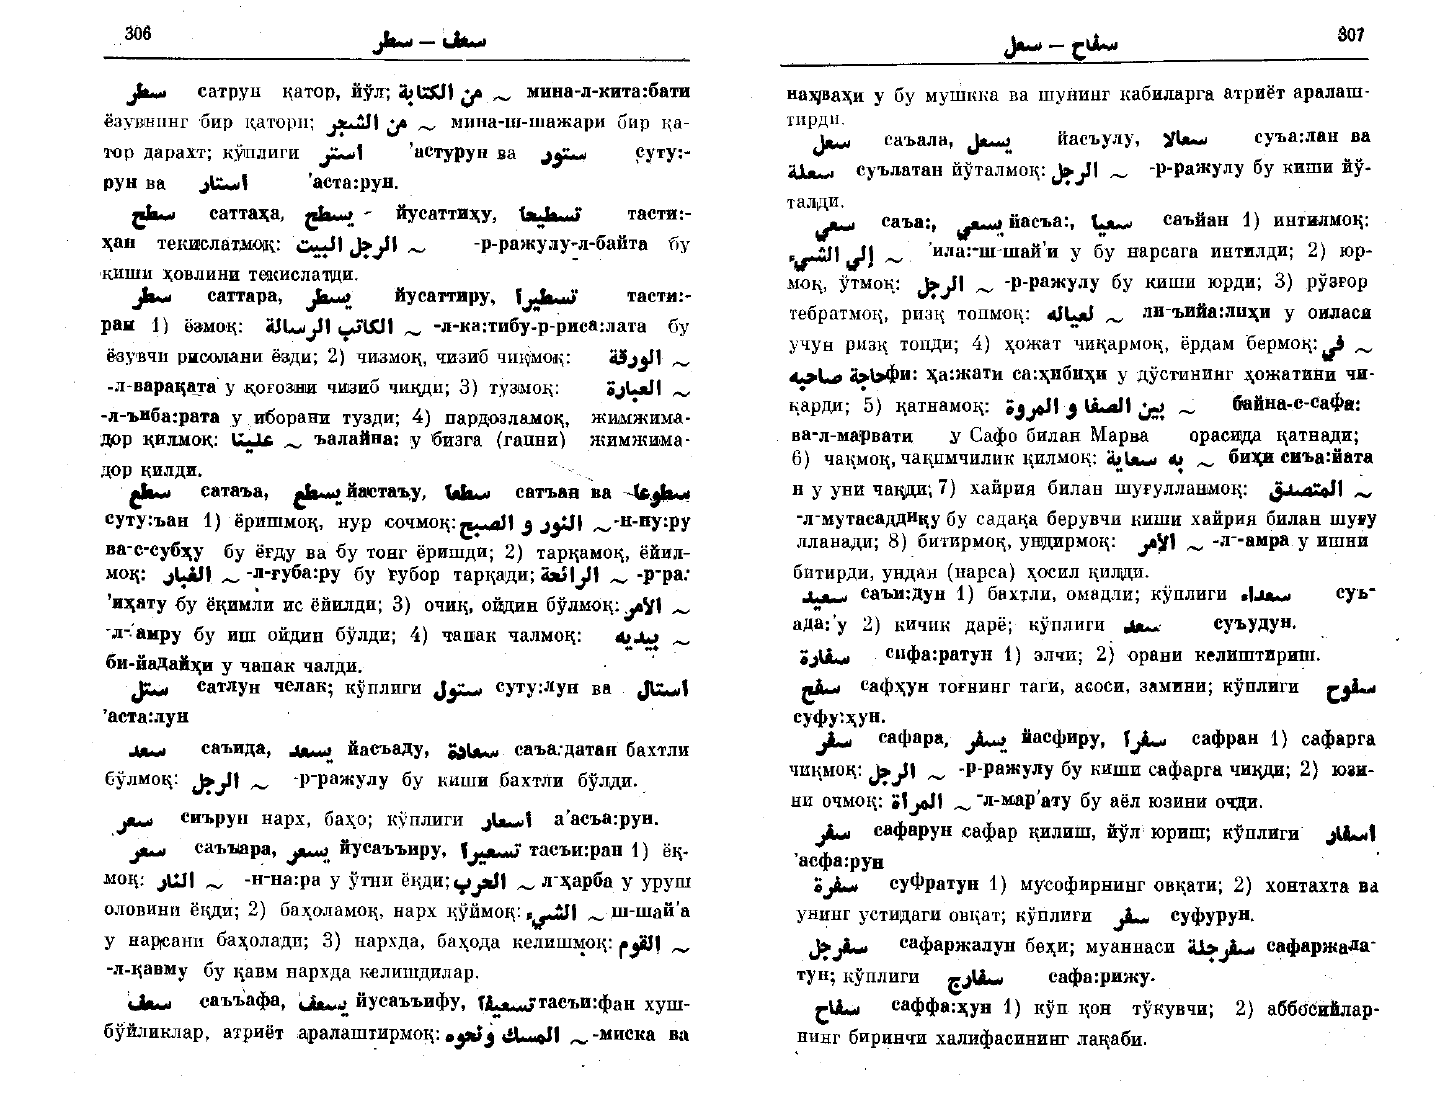 306
سعف — سطر
سطر сатрун қатор, йўл; من الكتابة ~ мина-л-кита:бати
ёзувнинг бир қатори; من الشجر ~ мина-ш-шажари бир қа-
тор дарахт; кўплиги استر ’астурун ва ستور суту:-
рун ва استار ’аста:рун.
سطح саттаҳа, يسطح - йусаттиҳу, تسطيحا тасти:-
ҳан текислатмоқ: الرجل البيت ~ -р-ражулу-л-байта бу
киши ҳовлини текислатди.
سطر саттара, يسطر йусаттиру, تسطيرا тасти:-
ран 1) ёзмоқ: الكاتب الرسالة ~ -л-ка:тибу-р-риса:лата бу
ёзувчи рисолани ёзди; 2) чизмоқ, чизиб чиқмоқ: الورقة ~
-л-варақата у қоғозни чизиб чиқди; 3) тузмоқ: العبارة ~
-л-ъиба:рата у иборани тузди; 4) пардозламоқ, жимжима-
дор қилмоқ: علينا ~ ъалайна: у бизга (гапни) жимжима-
дор қилди.
سطع сатаъа, يسطع йастаъу, سطعا сатъан ва سطوعا
суту:ъан 1) ёришмоқ, нур сочмоқ: النور و الصبح ~ -н-ну:ру
ва-с-субҳу бу ёғду ва бу тонг ёришди; 2) тарқамоқ, ёйил-
моқ: الغبار ~ -л-ғуба:ру бу ғубор тарқади; الرائحة ~ -р-ра:
’иҳату бу ёқимли ис ёйилди; 3) очиқ, ойдин бўлмоқ: الامر ~
-л-’амру бу иш ойдин бўлди; 4) чапак чалмоқ: بيديه ~
би-йадайҳи у чапак чалди.
سطل сатлун челак; кўплиги سطول суту:лун ва اسطال
’аста:лун
سعد саъида, يسعد йасъаду, سعادة саъа:датан бахтли
бўлмоқ: الرجل ~ -р-ражулу бу киши бахтли бўлди.
سعر сиърун нарх, баҳо; кўплиги اسعار а’асъа:рун.
سعر саъъара, يسعر йусаъъиру, تسعيرا тасъи:ран 1) ёқ-
моқ: النار ~ -н-на:ра у ўтни ёқди; الحرب ~ л-ҳарба у уруш
оловини ёқди; 2) баҳоламоқ, нарх қўймоқ: الشيء ~ ш-шай’а
у нарсани баҳолади; 3) нархда, баҳода келишмоқ: القوم ~
-л-қавму бу қавм нархда келишдилар.
سعف саъъафа, يسعف йусаъъифу, تسعيفا тасъи:фан хуш-
бўйликлар, атриёт аралаштирмоқ: المسك و نحوه ~ -миска ва
307
سفاح — سعل
наҳваҳи у бу мушкка ва шунинг кабиларга атриёт аралаш-
тирди.
سعل саъала, يسعل йасъулу, سعالا суъа:лан ва
سعلة суълатан йўталмоқ: الرجل ~ -р-ражулу бу киши йў-
талди.
سعى саъа:, يسعى йасъа:, سعيا саъйан 1) интилмоқ:
إلى الشيء ~ ’ила:-ш-шай’и у бу нарсага интилди; 2) юр-
моқ, ўтмоқ: الرجل ~ -р-ражулу бу киши юрди; 3) рўзғор
тебратмоқ, ризқ топмоқ: لعياله ~ ли-ъийа:лиҳи у оиласи
учун ризқ топди; 4) ҳожат чиқармоқ, ёрдам бермоқ: في ~
حاجة صاحبه фи: ҳа:жати са:ҳибиҳи у дўстининг ҳожатини чи-
қарди; 5) қатнамоқ: بين الصفا و المروة ~ байна-с-сафа:
ва-л-марвати у Сафо билан Марва орасида қатнади;
6) чақмоқ, чақимчилик қилмоқ: به سعاية ~ биҳи сиъа:йата
н у уни чақди; 7) хайрия билан шуғулланмоқ: المتصدق ~
-л-мутасаддиқу бу садақа берувчи киши хайрия билан шуғу
лланади; 8) битирмоқ, ундирмоқ: الأمر ~ -л-’амра у ишни
битирди, ундан (нарса) ҳосил қилди.
سعيد саъи:дун 1) бахтли, омадли; кўплиги سعداء суъ-
ада:’у 2) кичик дарё; кўплиги سعد суъудун.
سفارة сифа:ратун 1) элчи; 2) орани келиштириш.
سفح сафҳун тоғнинг таги, асоси, замини; кўплиги سفوح
суфу:ҳун.
سفر сафара, يسفر йасфиру, سفرا сафран 1) сафарга
чиқмоқ: الرجل ~ -р-ражулу бу киши сафарга чиқди; 2) юзи-
ни очмоқ: المرأة ~ -л-мар’ату бу аёл юзини очди.
سفر сафарун сафар қилиш, йўл юриш; кўплиги اسفار
’асфа:рун
سفرة суфратун 1) мусофирнинг овқати; 2) хонтахта ва
унинг устидаги овқат; кўплиги سفر суфурун.
سفرجل сафаржалун беҳи; муаннаси سفرجلة сафаржала-
тун; кўплиги سفارج сафа:рижу.
سفاح саффа:ҳун 1) кўп қон тўкувчи; 2) аббосийлар-
нинг биринчи халифасининг лақаби.